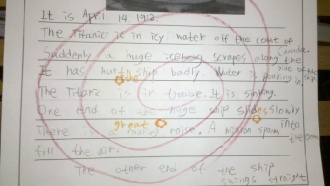 It is April 14 1912.
The Titanic is in icy water off the coast of Canada.
Suddenly a huge iceberg scrapes along the side of the
It has hurt the ship badly. Water is pouring in
The Titanic is in trouble. It is sinking.
One end of the huge ship slides slowly into
There is a great noise. A
fill the air.
The other end of the ship
straight